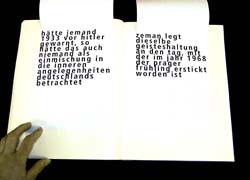 hätte jemand
1933 vor hitler
gewarnt, so
hätte das auch
niemand als
einmischung in
die inneren
angelegenheiten
deutschlands
betrachtet
zeman legt
dieselbe
geisteshaltung
an den tag, mit
der im jahr 1968
der prager
frühling erstickt
worden ist